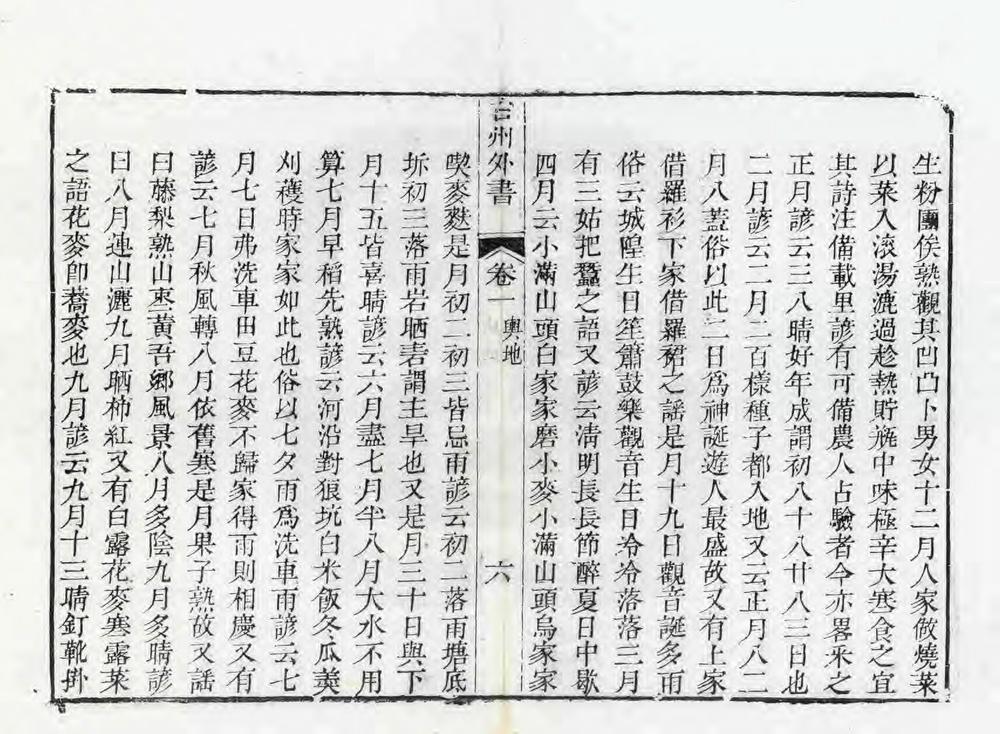 生粉團俟熟觀其凹凸卜男女十二月人家做燒菜
以菜入滚湯漉過趁熱貯瓶中味極辛大寒食之宜
其詩注備載里諺有可備農人占驗者今亦畧采之
正月諺云三八晴好年成謂初八十八廿八三日也
二月諺云二月二百樣種子都入地又云正月八二
月八蓋俗以此二日爲神誕遊人最盛故又有上家
借羅衫下家借羅裙之謡是月十九日觀音誕多雨
俗云城隍生日笙簫鼓樂觀音生日冷冷落落三月
有三姑把蠶之語又諺云淸明長長長節醉夏日中歇
四月云小滿山頭白家家磨小麥小滿山頭烏家家
台州外書
卷一
輿地
六
喫麥麩是月初二初三皆忌雨諺云初二落雨塘底
坼初三落雨岩晒𥔥謂主旱也又是月三十日與下
月十五皆喜晴諺云六月盡七月半八月大水不用
算七月早稻先熟諺云河沿對狼坑白米飯冬瓜羹
刈穫時家家如此也俗以七夕雨爲洗車雨諺云七
月七日弗洗車田豆花麥不歸家得雨則相慶又有
諺云七月秋風轉八月依舊寒是月果子熟故又謡
曰藤梨熟山棗黃吾鄉風景八月多陰九月多晴諺
曰八月連山灑九月晒柿紅又有白露花麥寒露菜
之語花麥卽蕎麥也九月諺云九月十三晴釘靴掛